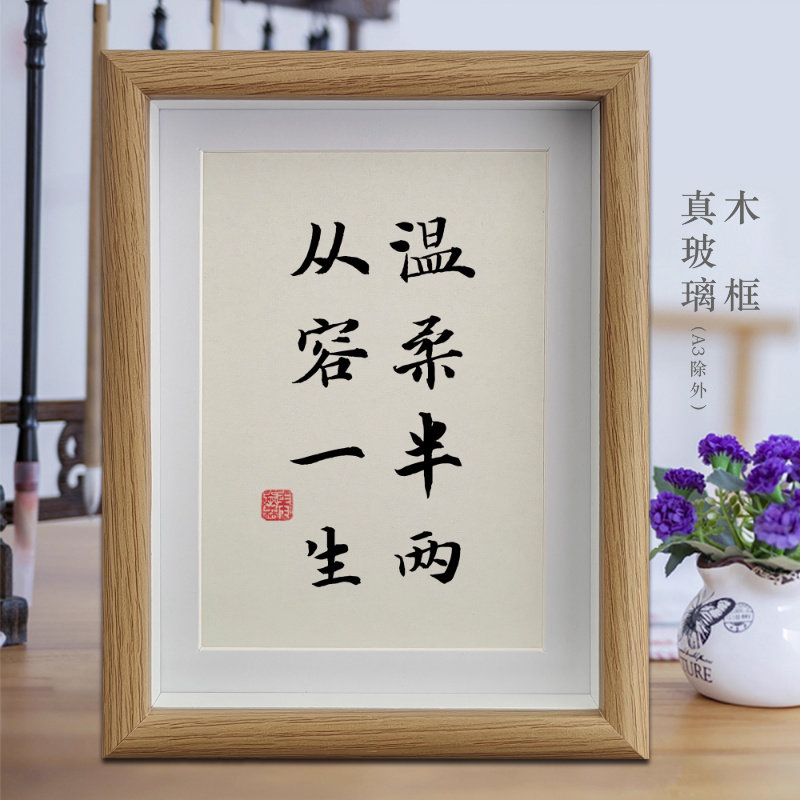 温柔半两
从容一生
木框
真玻璃(A3除外)
TURE